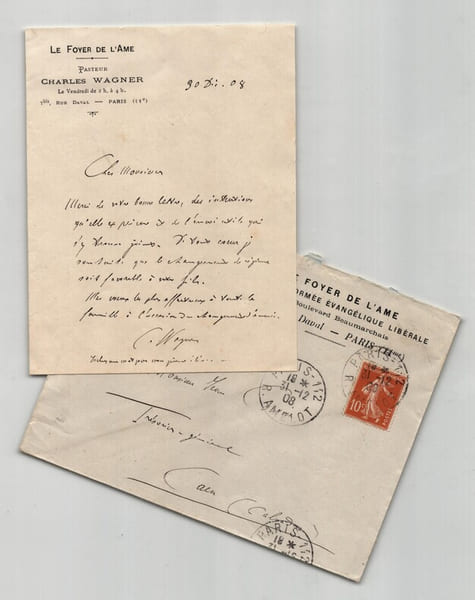 LE FOYER DE L'AME
PASTEUR
CHARLES WAGNER
Le Vendredi de 2 h. à 4 h.
7bis, RUE DAVAL — PARIS (11e)
30 Dc. 08
Cher Monsieur
Merci de votre bonne lettre, des intentions
qu'elle exprime et de l'envoi utile qui
s'y trouve joint. De tout cœur je
souhaite que le changement de régime
soit favorable à votre fils.
Mes vœux les plus affectueux à toute la
famille à l'occasion du changement d'année.
C. Wagner
E FOYER DE L'AME
FORMÉE ÉVANGÉLIQUE LIBÉRALE
Boulevard Beaumarchais
Daval — PARIS (XIme)
PARIS-112
18 *
31-12
08
R. AMELOT
PARIS-112
31-12
R.
10c
Monsieur
Trésorier-général
Caen (Calvados)
PARIS-112
18 *